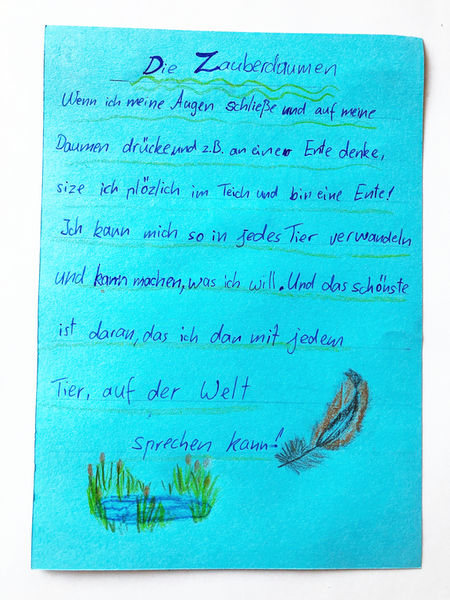 Die Zauberdaumen
Wenn ich meine Augen schließe und auf meine
Daumen drücke und z.B. an eine Ente denke,
size ich plözlich im Teich und bin eine Ente!
Ich kann mich so in jedes Tier verwandeln
und kann machen, was ich will. Und das schönste
ist daran, das ich dan mit jedem
Tier, auf der Welt
sprechen kann!